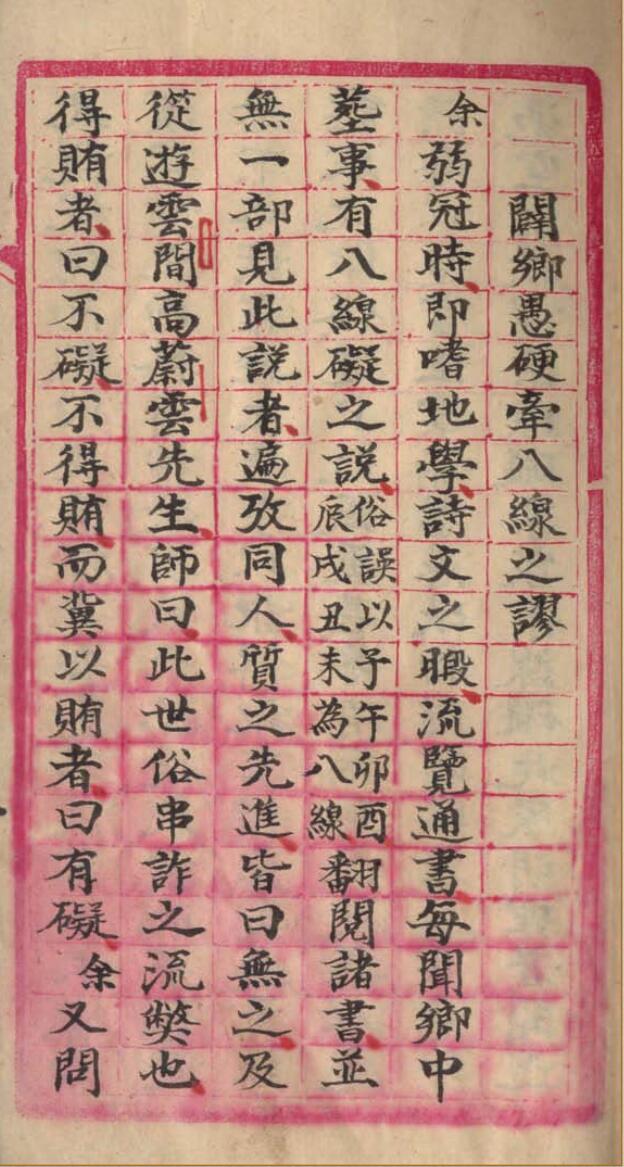 闢鄉愚硬牽八線之謬
余弱冠時即嗜地學詩文之暇流覽通書每聞鄉中
塟事有八線礙之說俗誤以子午卯酉辰戌丑未為八線翻閱諸書並
無一部見此說者遍攷同人質之先進皆曰無之及
從遊雲間高蔚雲先生師曰此世俗串詐之流獘也
得賄者曰不礙不得賄而冀以賄者曰有礙余又問